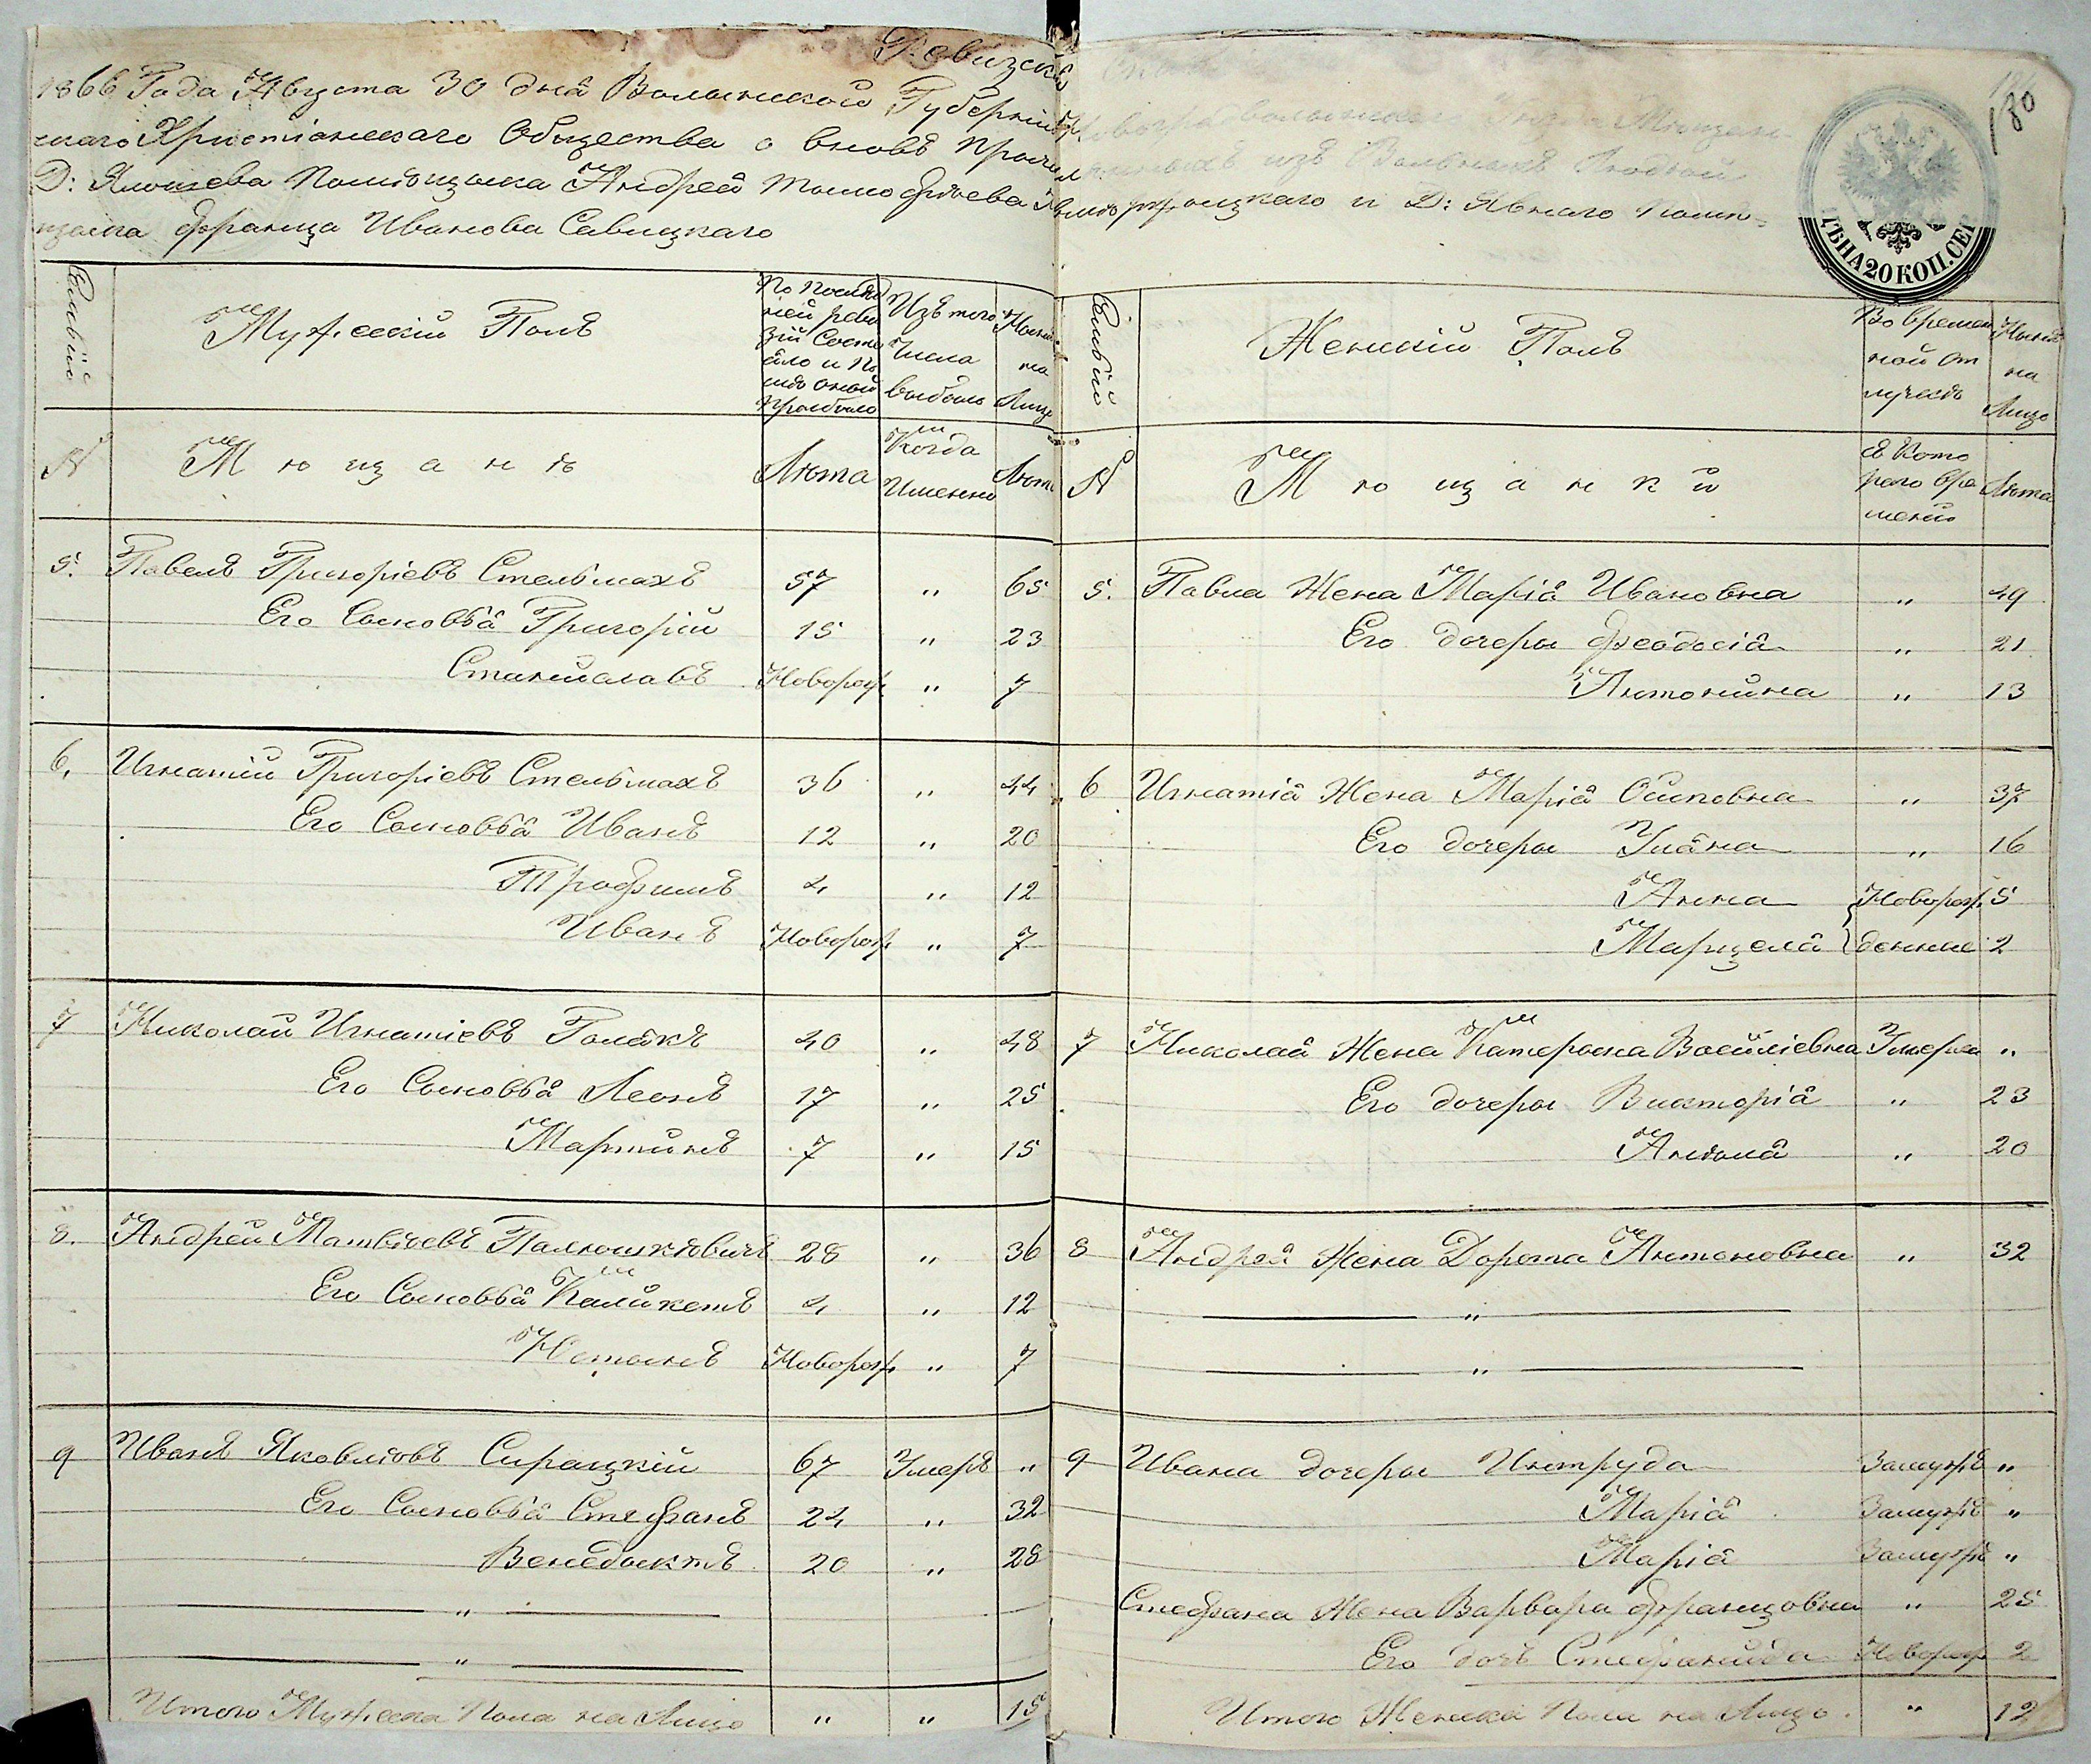 Ревизска
1866 Года Августа 30 дня Волынской Губерніи
скаго Христіанскаго Общества о вновь
Д: Помѣщика Андрея и Д: Помѣ=
щика Франца Иванова Савицкаго
180
ЦѢНА 20 КОП. СЕР
Семьи
Мужескій Полъ
По послѣд
ней реви
зіи состо
яло и по
слѣ оной
прибыло
Изъ того
числа
выбыло
Нынѣ
на
Лицо
№
Мѣщанѣ
Лѣта
Когда
Именно
Лѣта
5. Павелъ Григоріевъ Стельмахъ 57 " 65
Его Сыновья Григорій 15 " 23
Станиславъ Новорож. " 7
6. Игнатій Григоріевъ Стельмахъ 36 " 44
Его Сыновья Иванъ 12 " 20
Трофимъ 4 " 12
Иванъ Новорож. " 7
7 Николай Игнатіевъ Полякъ 40 " 48
Его Сыновья Леонъ 17 " 25
Мартинъ 7 " 15
8. Андрей Матвѣевъ 28 " 36
Его Сыновья 4 " 12
Новорож. " 7
9 Иванъ Яковлѣовъ Сирацкій 67 Умеръ "
Его Сыновья Стефанъ 24 " 32
Бенедыктъ 20 " 28
"
"
Итого Мужеска Пола на Лицо " " 15
Семьи
Женскій Полъ
Во времен
ной от
лучкѣ
Нынѣ
на
Лицо
№
Мѣщанки
Съ Кото
раго вре
мени
Лѣта
5. Павла Жена Марія Ивановна " 49
Его дочеры Феодосія " 21
Антонина " 13
6 Игнатія Жена Марія Осиповна " 37
Его дочеры Уляна " 16
Анна Новорож 5
Марцеля денные 2
7 Николая Жена Катерына Василіевна Умерла "
Его дочеры Викторія " 23
Анѣля " 20
8 Андрея Жена Дорота Антоновна " 32
"
"
9 Ивана дочеры Интруда Замужъ "
Марія Замужъ "
Марія Замужъ "
Стефана Жена Варвара Францовна " 25
Его дочь Стефанида Новорож 2
Итого Женска Пола на Лицо. " 12